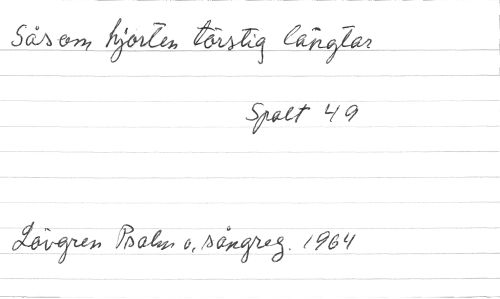 Såsom hjorten törstig längtar
Spalt 49
Lövgren Psalm o. sångreg. 1964